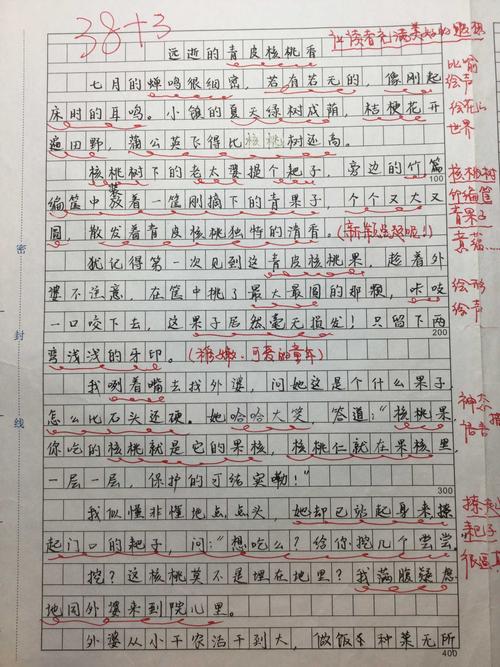 38+3
远逝的青皮核桃香
七月的蝉鸣很细密,若有若无的,像刚起
床时的耳鸣。小镇的夏天绿树成荫,桔梗花开
遍田野,蒲公英飞得比核桃树还高。
核桃树下的老太婆摸个耙子,旁边的竹篇
编筐中装着一筐刚摘下的青果子,个个又大又
圆,散发着青皮核桃独特的清香。
犹记得第一次见到这青皮核桃果,趁着外
婆不注意,在筐中挑了最大最圆的那颗,咔吱
一口咬下去,这果子居然毫无损发!只留下两
弯浅浅的牙印。
我咧着嘴去找外婆,问她这是个什么果子,
怎么比石头还硬。她哈哈大笑 答道:“核桃果,
你吃的核桃就是它的果核,核桃仁就在果核里,
一层一层,保护的可结实嘞!”
我似懂非懂地点点头,她却已站起身来操
起门口的耙子,问:“想吃么?给你挖几个尝尝
挖?这核桃莫不是埋在地里?我满腹疑惑
地同外婆来到院儿里。
外婆从小干农活干到大,做饭种菜无所
100
200
300
400
密
封
线
比喻
绘声
世界
核桃树
竹编筐
青果子
绘形
绘声
神态
耙子